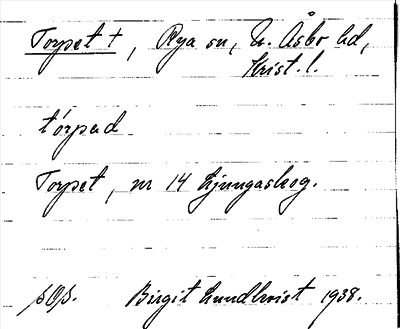 Torpet †, Rya sn, N. Åsbo hd,
Krist. l.
tórpəd
Torpet, nr 14 Ljungaskog.
sOs. Birgit Lundkvist 1938.